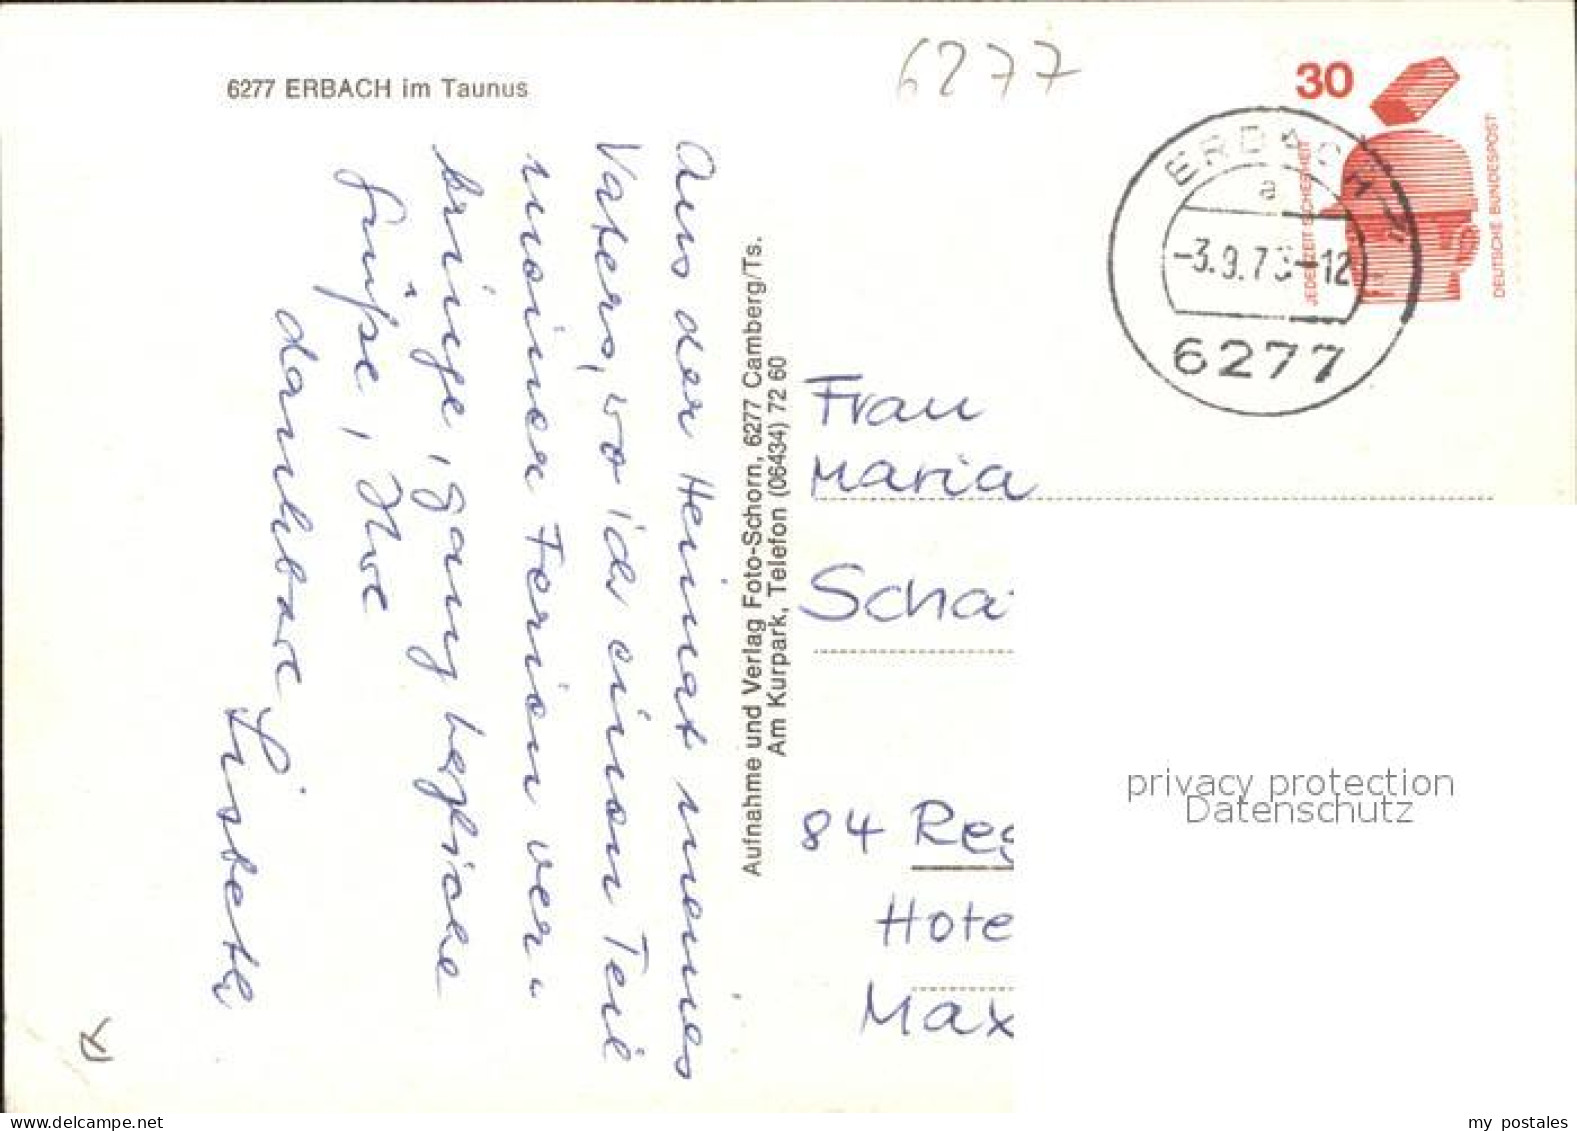 6277 ERBACH im Taunus
6277
30
JEDERZEIT SICHERHEIT
DEUTSCHE BUNDESPOST
ERBACH
a
-3.9.7 -12
6277
Aus der Heimat meines
Vaters, wo ich einen Teil
meiner Ferien ver"
bringe, ganz herzliche
Grüße, Ihre
dankbare
Lisbeth
Aufnahme und Verlag Foto-Schorn, 6277 Camberg/Ts.
Am Kurpark, Telefon (06434) 72 60
Frau
Maria
Scha
84 Reg
Hote
Max
privacy protection
Datenschutz
www.delcampe.net
my postales